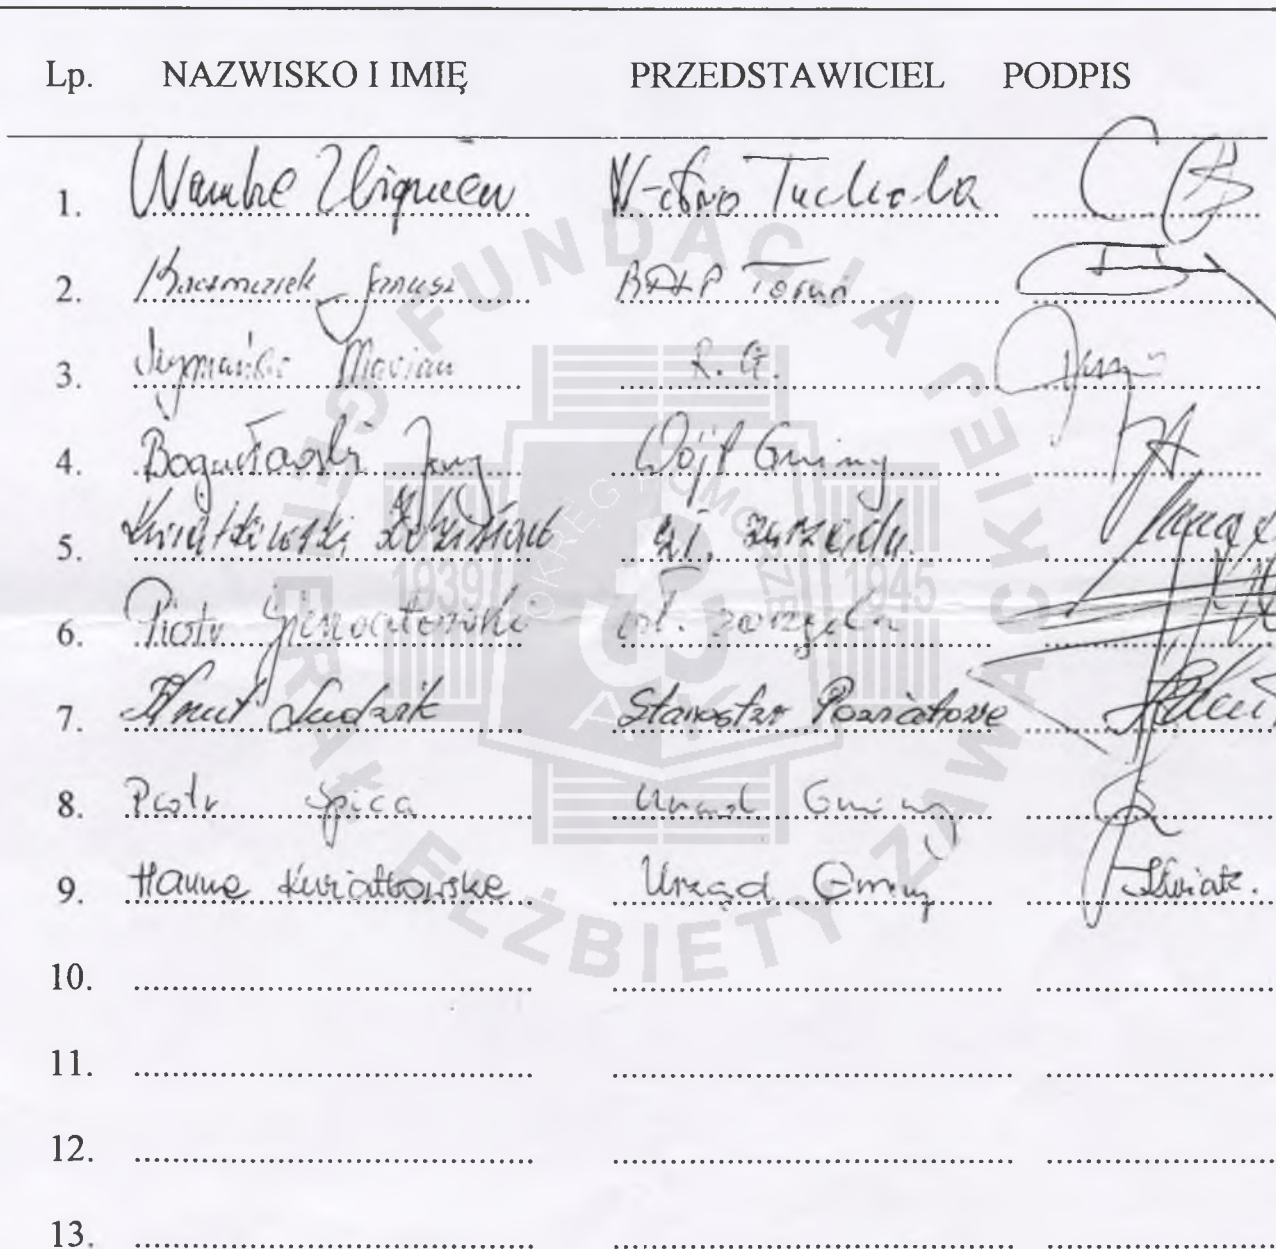 Lp. NAZWISKO I IMIĘ PRZEDSTAWICIEL PODPIS
1. Warnke Zbigniew N-ctwo Tuchola
2. Kaczmarek Janusz Toruń
3. Szymański Marian R. G.
4. Bogusławski Jerzy Wójt Gminy
5. Kwiatkowski Zdzisław czł. zarządu
6. Piotr czł. zarządu
7. Knut Ludzik Starostwo Powiatowe
8. Piotr Spica Urząd Gminy
9. Hanna Kwiatkowska Urząd Gminy Kwiatk.
10.
11.
12.
13.
FUNDACJA GENERAŁ ELŻBIETY ZAWACKIEJ
OKRĘG POMORZE
1939 1945
AK